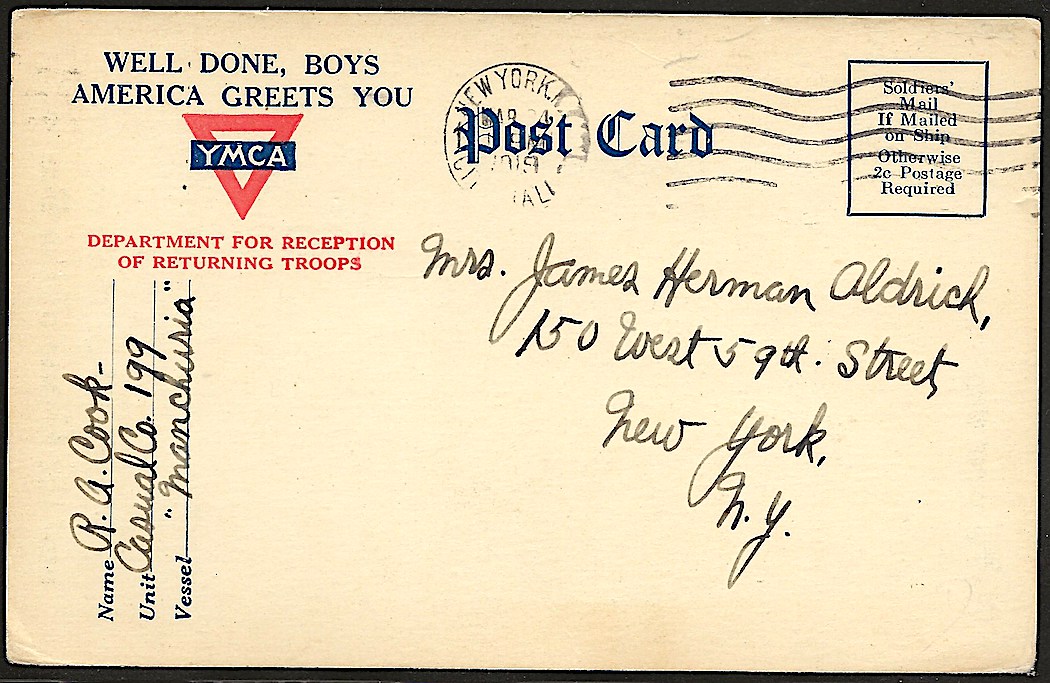 WELL DONE, BOYS
AMERICA GREETS YOU
YMCA
DEPARTMENT FOR RECEPTION
OF RETURNING TROOPS
Name R. A. Cook-
Unit Casual Co. 199
Vessel "Manchuria"
NEW YORK, N.
MAR 24
1919
Post Card
Soldiers'
Mail
If Mailed
on Ship
Otherwise
2c Postage
Required
Mrs. James Herman Aldrich,
150 West 59th. Street,
New York,
N.Y.